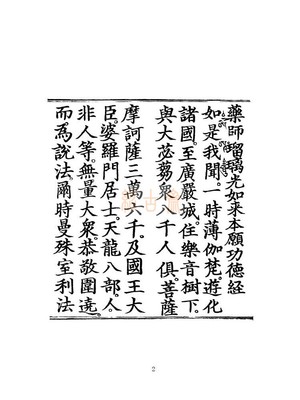 藥師瑠璃光如來本願功德經
如是我聞。一時薄伽梵。遊化
諸國。至廣嚴城。住樂音樹下。
與大苾芻眾八千人俱。菩薩
摩訶薩三萬六千。及國王大
臣。婆羅門居士。天龍八部。人。
非人等。無量大眾。恭敬圍遶。
而為說法。爾時曼殊室利法
2